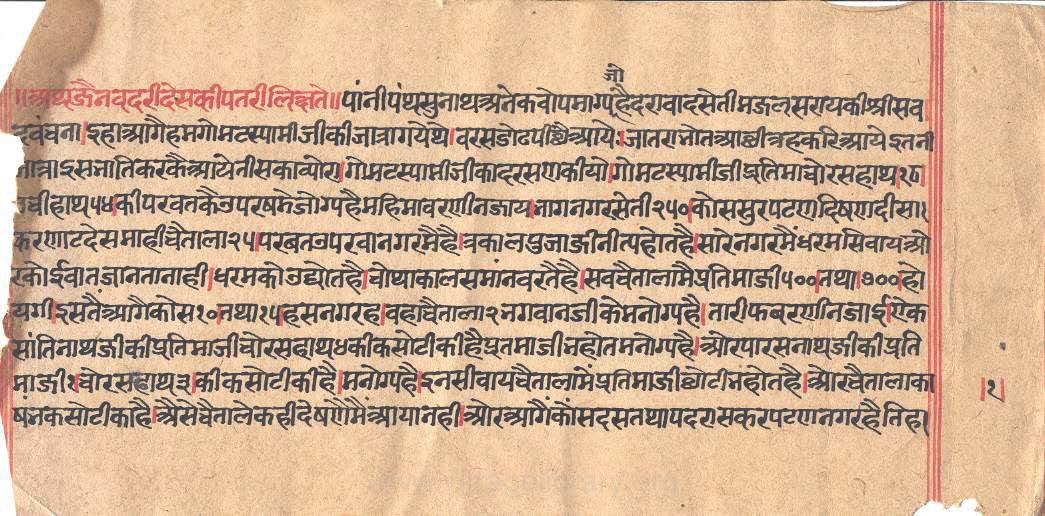 जो
॥अथ जैनबदरी देसकी पतरी लिख्यते॥ पांनीपंथसुनाथ अनेकवोपमाग्य हैदरावादसेती मजलसरायकी श्रीसव
वंचना।इहा आगैहमगोमटस्वामीजीकीजात्रागयेथे।वरसडोढपीछैआये।जातरा आछीत्रहकरिआये इतनी
जात्राइसभातिकरकै आये । गोमटस्वामीजीकादरसणकीयो।गोमटस्वामीजीप्रतिमाचोरसहाथ १८।
उचीहाथ ५४ की परवतकैउपरषडेजोग्यहैमहिमावरणीनजाय।नागनगरसेती २५० कोससुरपटणदिषणदीसा।
करणाटदेसमाहीचैताला २५।परबतउपरवानगरमैहै।त्रकालपुजाजीनीत्यहोतहै।सारेनगरमैंधरमसिवायओ
रकोईवातजानतानाही।धरमकोउद्योतहै।चोथाकालसमांनवरतेहै।सवचैतालामैप्रतिमाजी ५०० तथा।७०० हो
यगी।इसतैंआगैकोस १० तथा १५।हसनगरहै।वहाचैताला २ भगवानजीकेमनोग्यहै। तारीफबरणीनजाई।ऐक
सांतिनाथजीकीप्रतिमाजीचोरसहाथ ४ कीकसोटीकीहैप्रतमाजीबहोतमनोग्यहै।ओरपारसनाथजीकीप्रति
माजी १ चोरसहाथ ३।कीकसोटीकीहै।मनोग्यहै।इनसीवायचैतालामेंप्रतिमाजीछोटीबहोतहै।ओरचैतालाका
षंभकसोटीकाहै।अैसेचैतालेकहीदेषणैमैंआयानही।ओरआगैंकोसदसतथापदरासंकरपटणनगरहैतिहा
।१।